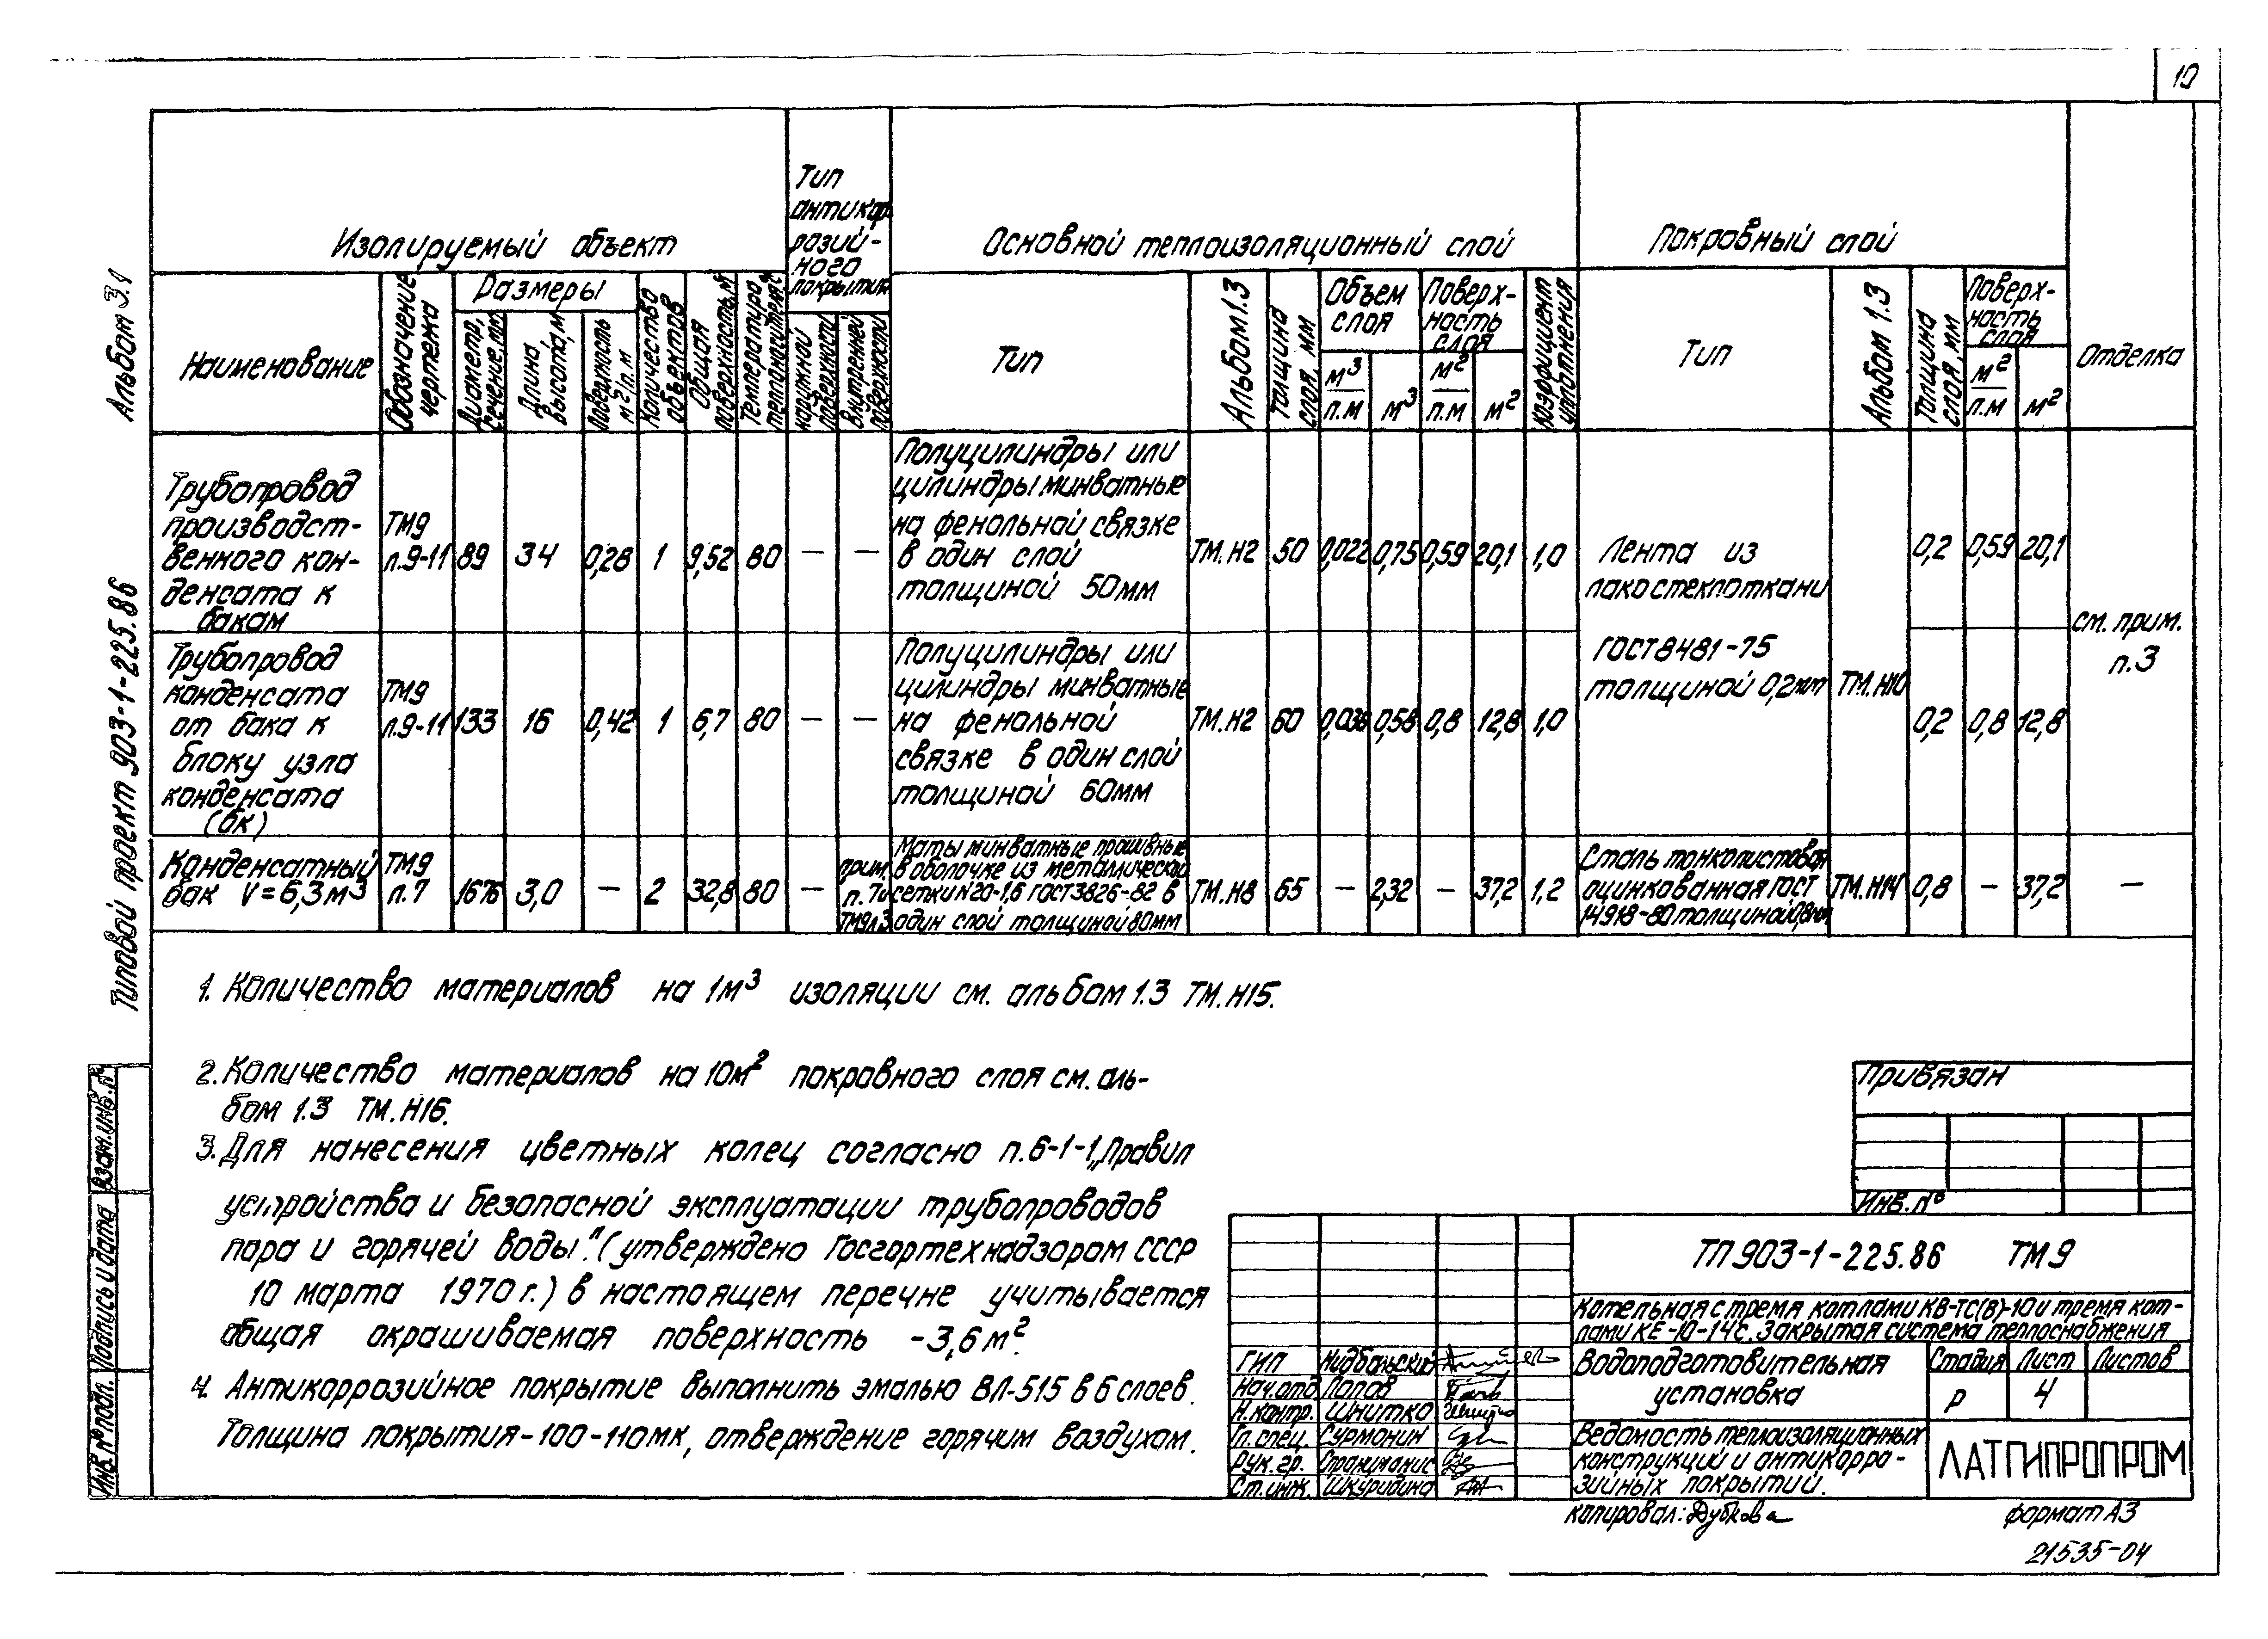 10
Альбом 3.1
Типовой проект 903-1-225.86
Изолируемый объект
Тип антикор-
розий-
ного
покрытия
Основной теплоизоляционный слой
Покровный слой
Отделка
Наименование
Обозначение чертежа
Размеры
Диаметр, сечение, мм
Длина, высота, м
Поверхность м²/п.м
Количество объектов
Общая поверхность, м²
Температура теплоносителя °С
наружной поверхности
внутренней поверхности
Тип
Альбом 1.3
Толщина слоя, мм
Объем слоя
м³/п.м
м³
Поверх-
ность
слоя
м²/п.м
м²
Коэффициент уплотнения
Тип
Альбом 1.3
Толщина слоя, мм
Поверх-
ность
слоя
м²/п.м
м²
Трубопровод
производст-
венного кон-
денсата к
бакам
ТМ9
л.9-11
89 34 0,28 1 9,52 80 — —
Полуцилиндры или
цилиндры минватные
на фенольной связке
в один слой
толщиной 50мм
ТМ.Н2 50 0,022 0,75 0,59 20,1 1,0
Лента из
лакостеклоткани
ГОСТ 8481-75
толщиной 0,2мм
ТМ.Н10
0,2 0,59 20,1
см. прим.
п.3
Трубопровод
конденсата
от бака к
блоку узла
конденсата
(бк)
ТМ9
л.9-11
133 16 0,42 1 6,7 80 — —
Полуцилиндры или
цилиндры минватные
на фенольной
связке в один слой
толщиной 60мм
ТМ.Н2 60 0,036 0,58 0,8 12,8 1,0
0,2 0,8 12,8
Конденсатный
бак V=6,3м³
ТМ9
л.7
1676 3,0 — 2 32,8 80 —
прим.
п.7и
ТМ9л3
Маты минватные прошивные
в оболочке из металлической
сетки N20-1,6 ГОСТ 3826-82 в
один слой толщиной 80мм
ТМ.Н8 65 — 2,32 — 37,2 1,2
Сталь тонколистовая
оцинкованная ГОСТ
14918-80 толщиной 0,8мм
ТМ.Н14 0,8 — 37,2 —
1. Количество материалов на 1м³ изоляции см. альбом 1.3 ТМ.Н15.
2. Количество материалов на 10м² покровного слоя см. аль-
бом 1.3 ТМ.Н16.
3. Для нанесения цветных колец согласно п.6-1-1 „Правил
устройства и безопасной эксплуатации трубопроводов
пара и горячей воды." (утверждено Госгортехнадзором СССР
10 марта 1970 г.) в настоящем перечне учитывается
общая окрашиваемая поверхность -3,6 м².
4. Антикоррозийное покрытие выполнить эмалью ВЛ-515 в 6 слоев.
Толщина покрытия-100-110мк, отверждение горячим воздухом.
Привязан
Инв. №
ТП 903-1-225.86 ТМ9
Котельная с тремя котлами КВ-ТС(В)-10 и тремя кот-
лами КЕ-10-14с. Закрытая система теплоснабжения
ГИП Нидбальский
Нач.отд Попов
Н.контр. Шнитко
Гл.спец. Сурмонин
Рук.гр.
Ст.инж. Шкуридина
Водоподготовительная
установка
Стадия Лист Листов
Р 4
Ведомость теплоизоляционных
конструкций и антикорро-
зийных покрытий.
ЛАТГИПРОПРОМ
Взам.инв.№
Подпись и дата
Инв.№ подл.
Копировал: Дубкова
формат А3
21535-04